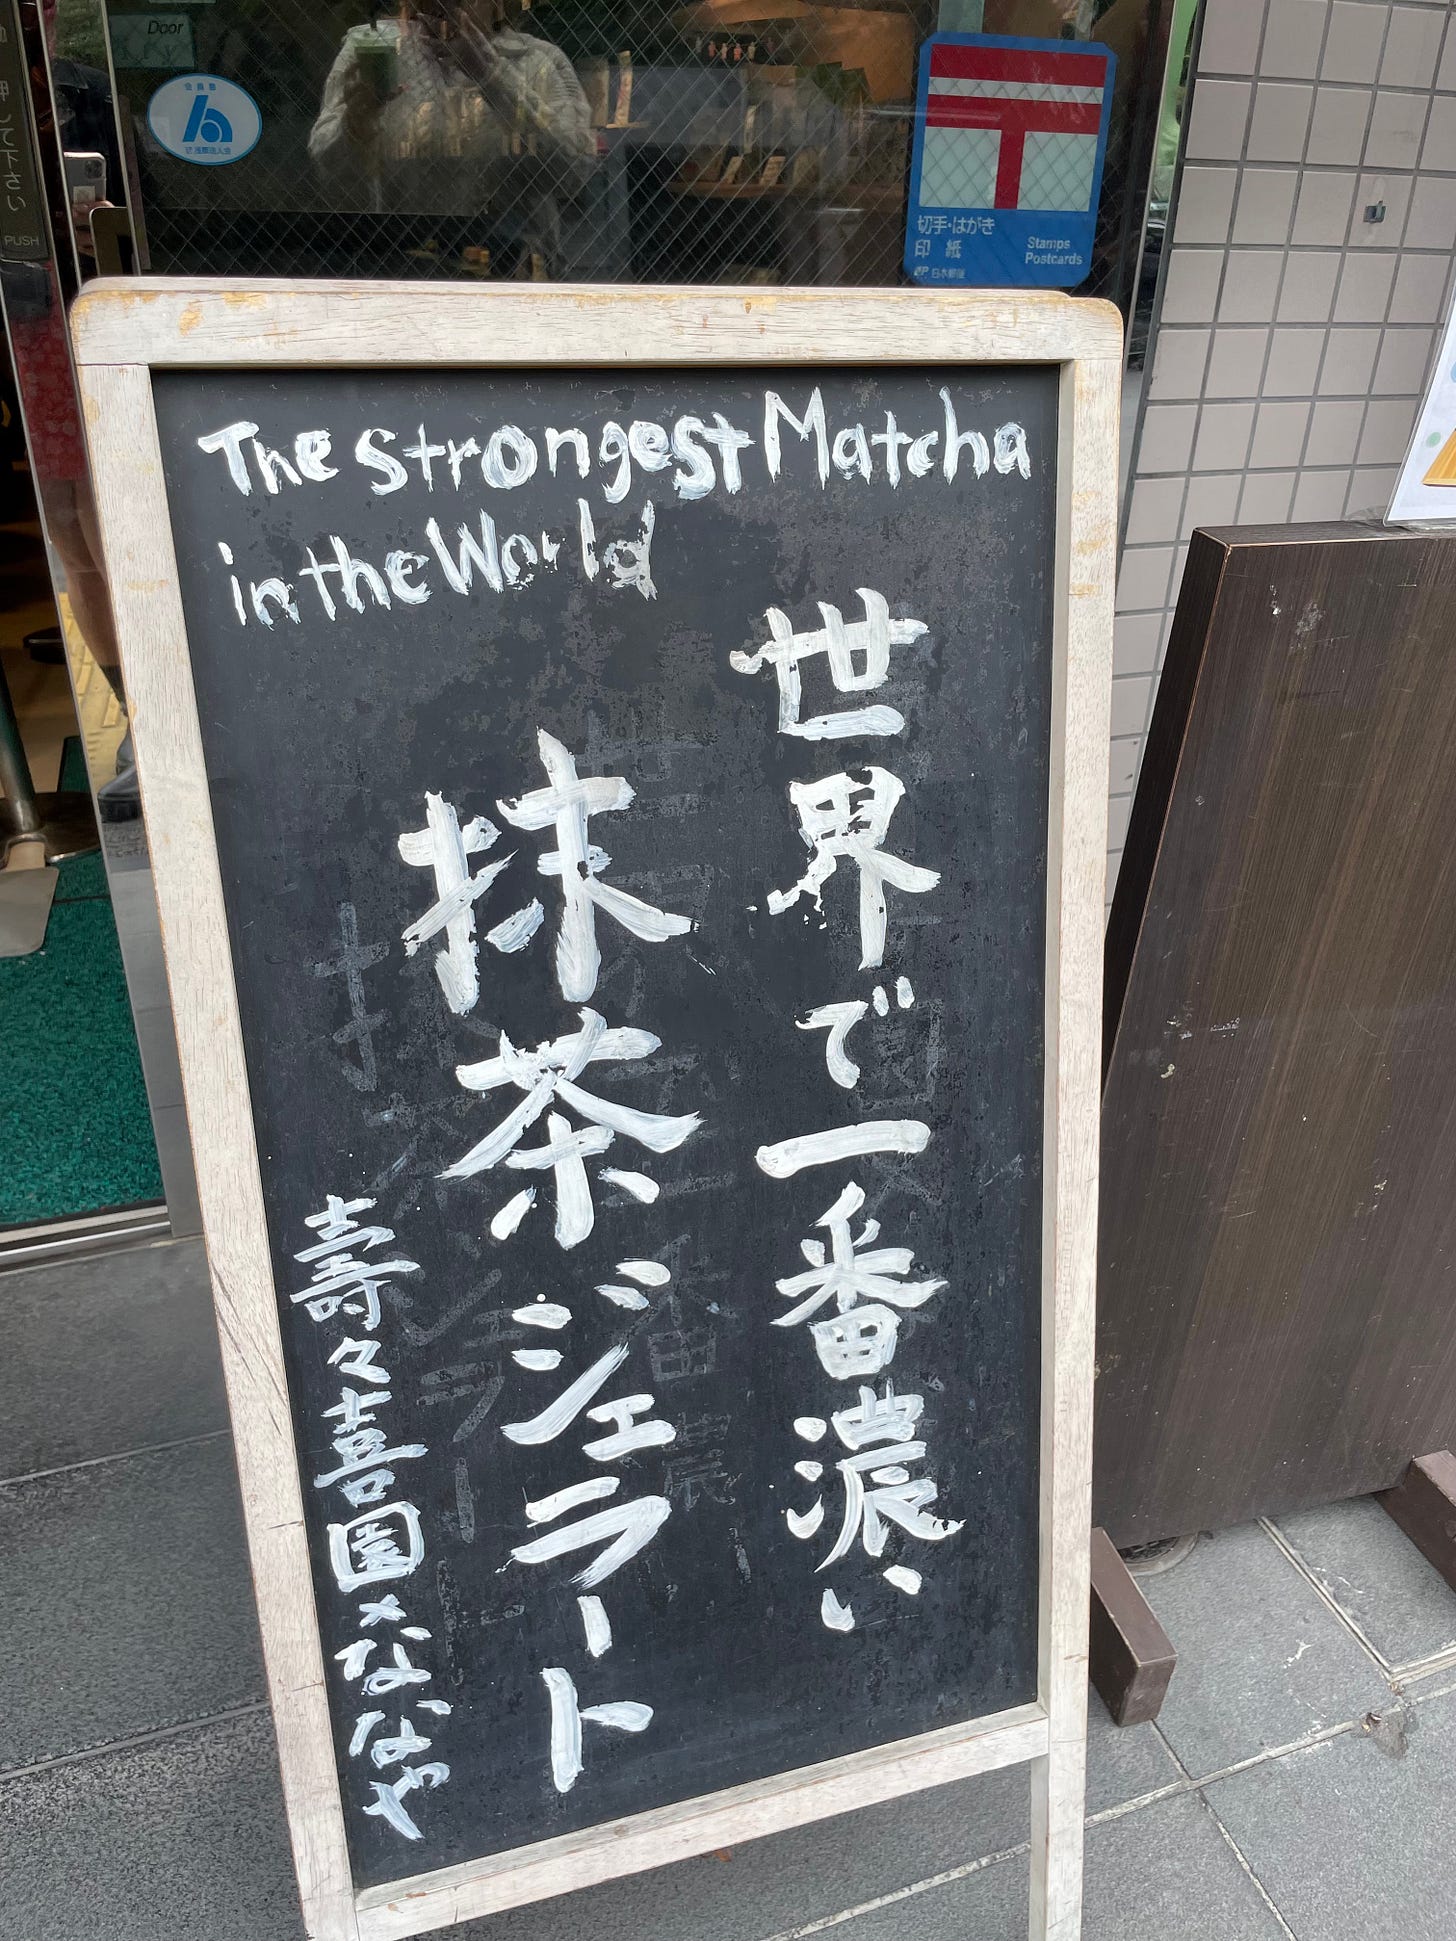 Door
PUSH
押して下さい
切手・はがき
印紙
Stamps
Postcards
日本郵便
The strongest Matcha
in the World
世界で一番濃い
抹茶ジェラート
壽々喜園×ななや